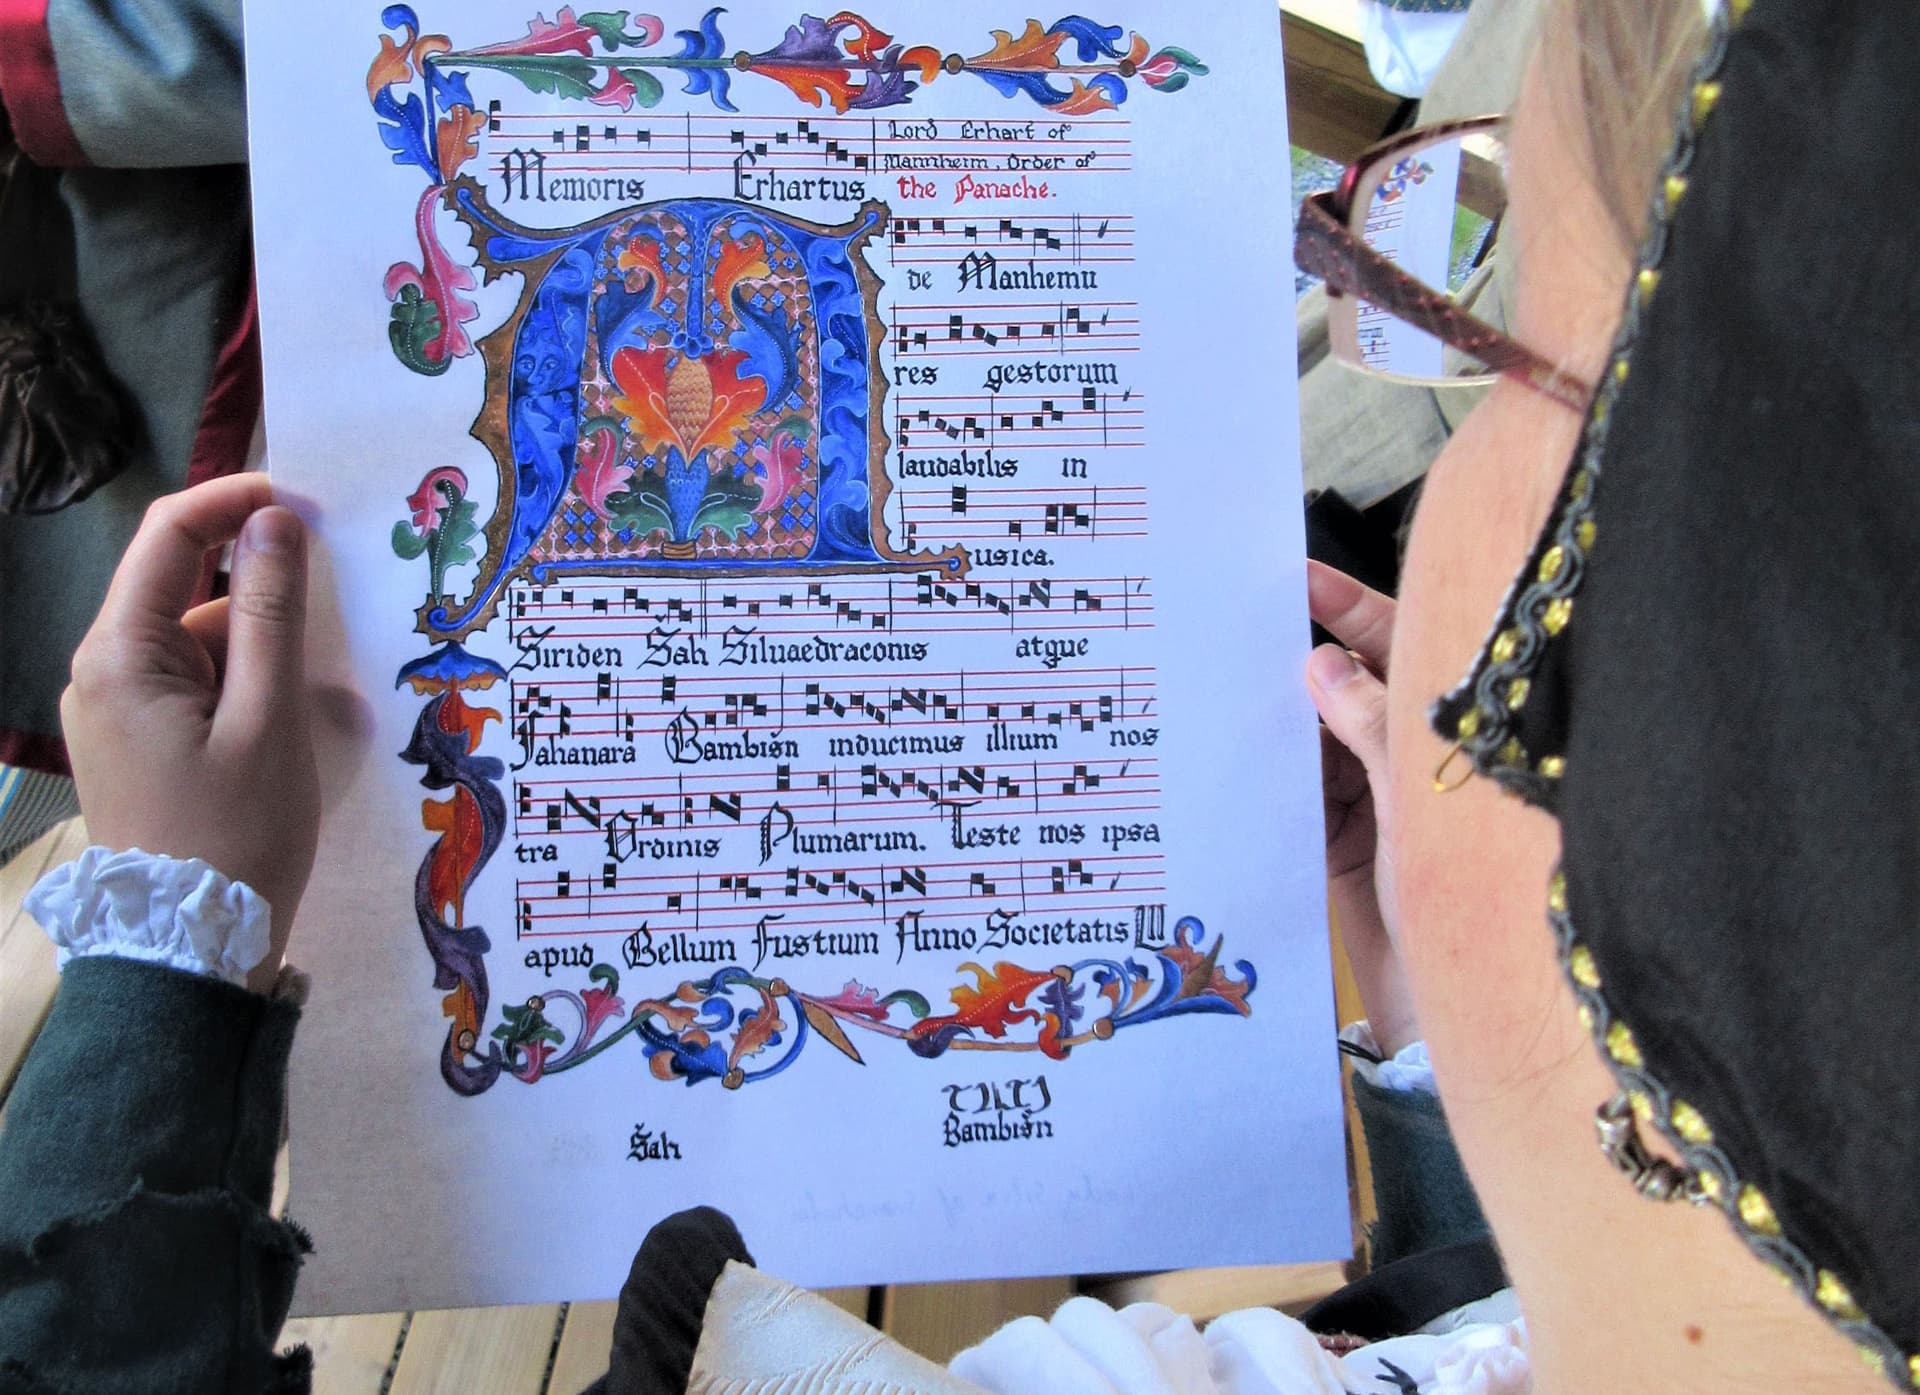 Lord Erhart of
Mannheim, Order of
Memoris Erhartus the Panache.
de Manhemu
res gestorum
laudabilis in
Musica.
Siriden Šah Siluaedraconis atque
Jahanara Bambišn inducimus illium nos
tra Ordinis Plumarum. Teste nos ipsa
apud Bellum Fustium Anno Societatis LII
Šah
Bambišn